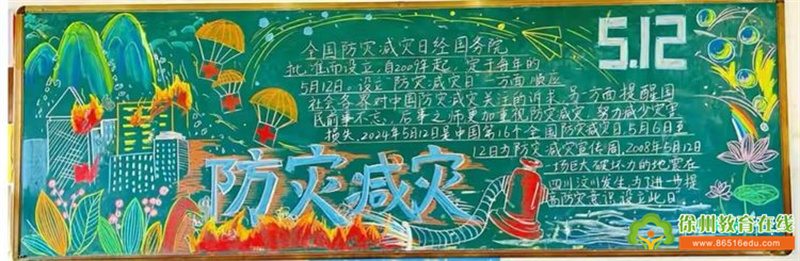 全国防灾减灾日经国务院
批准而设立,自2009年起,定于每年的
5月12日,设立“防灾减灾日”一方面顺应
社会各界对中国防灾减灾关注的诉求,另一方面提醒国
民前事不忘、后事之师更加重视防灾减灾,努力减少灾害
损失,2024年5月12日是中国第16个全国防灾减灾日,5月6日至
12日为防灾减灾宣传周,2008年5月12日
一场巨大破坏力的地震在
四川汶川发生,为了进一步提
高防灾意识,设立此日
5.12
防灾减灾
徐州教育在线
www.86516edu.com